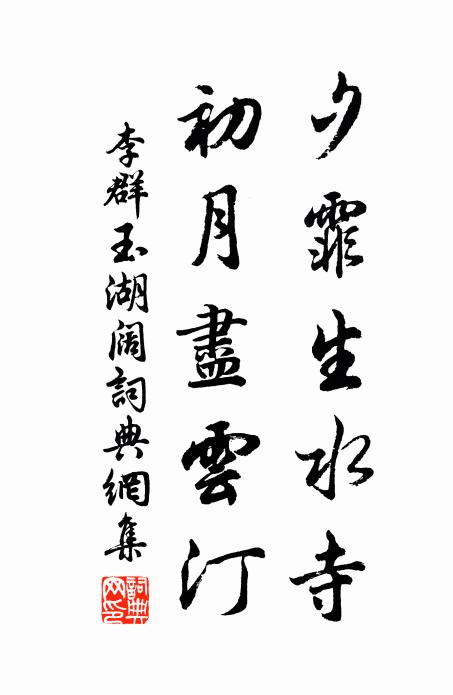 夕霏生水寺
初月盡雲汀
李群玉湖阔詞典網集
詞典網印